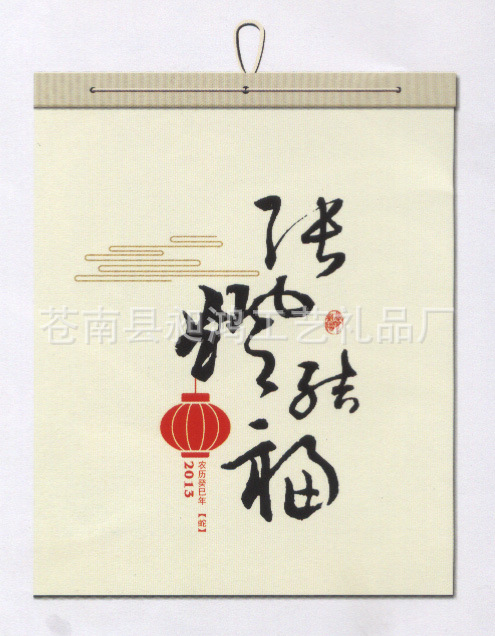 张燈结福
2013
农历癸巳年【蛇】
苍南县昶鸿工艺礼品厂